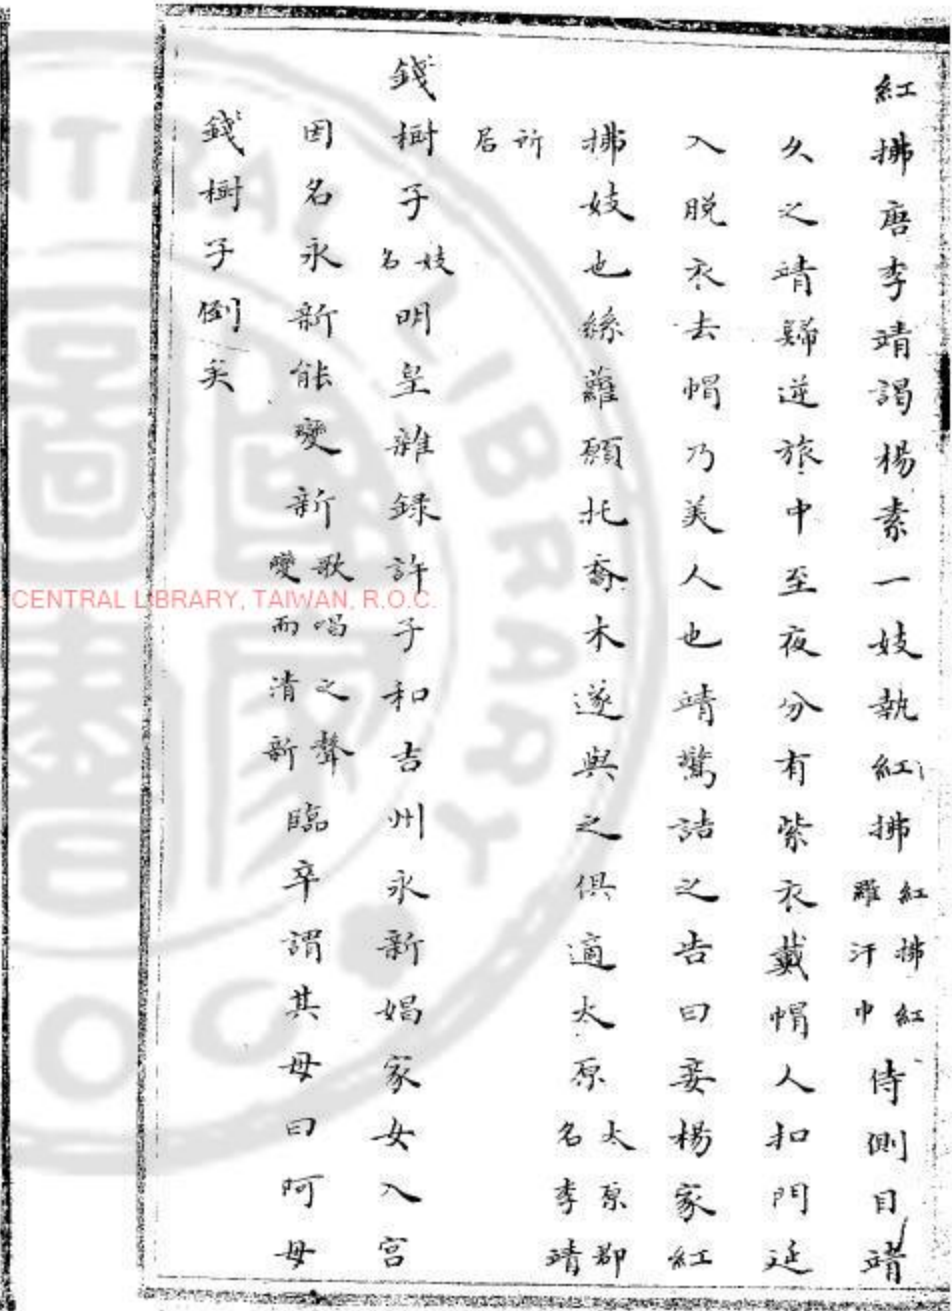 紅拂唐李靖謁楊素一妓執紅拂紅拂紅羅汗巾侍側目靖
久之靖歸逆旅中至夜分有紫衣戴帽人扣門延
入脫衣去帽乃美人也靖驚詰之告曰妾楊家紅
拂妓也絲蘿願托喬木遂與之俱適太原太原郡名李靖
所居
錢樹子妓名明皇雜錄許子和吉州永新娼家女入宮
因名永新能變新歌唱之聲變而清新臨卒謂其母曰阿母
錢樹子倒矣
CENTRAL LIBRARY, TAIWAN, R.O.C.